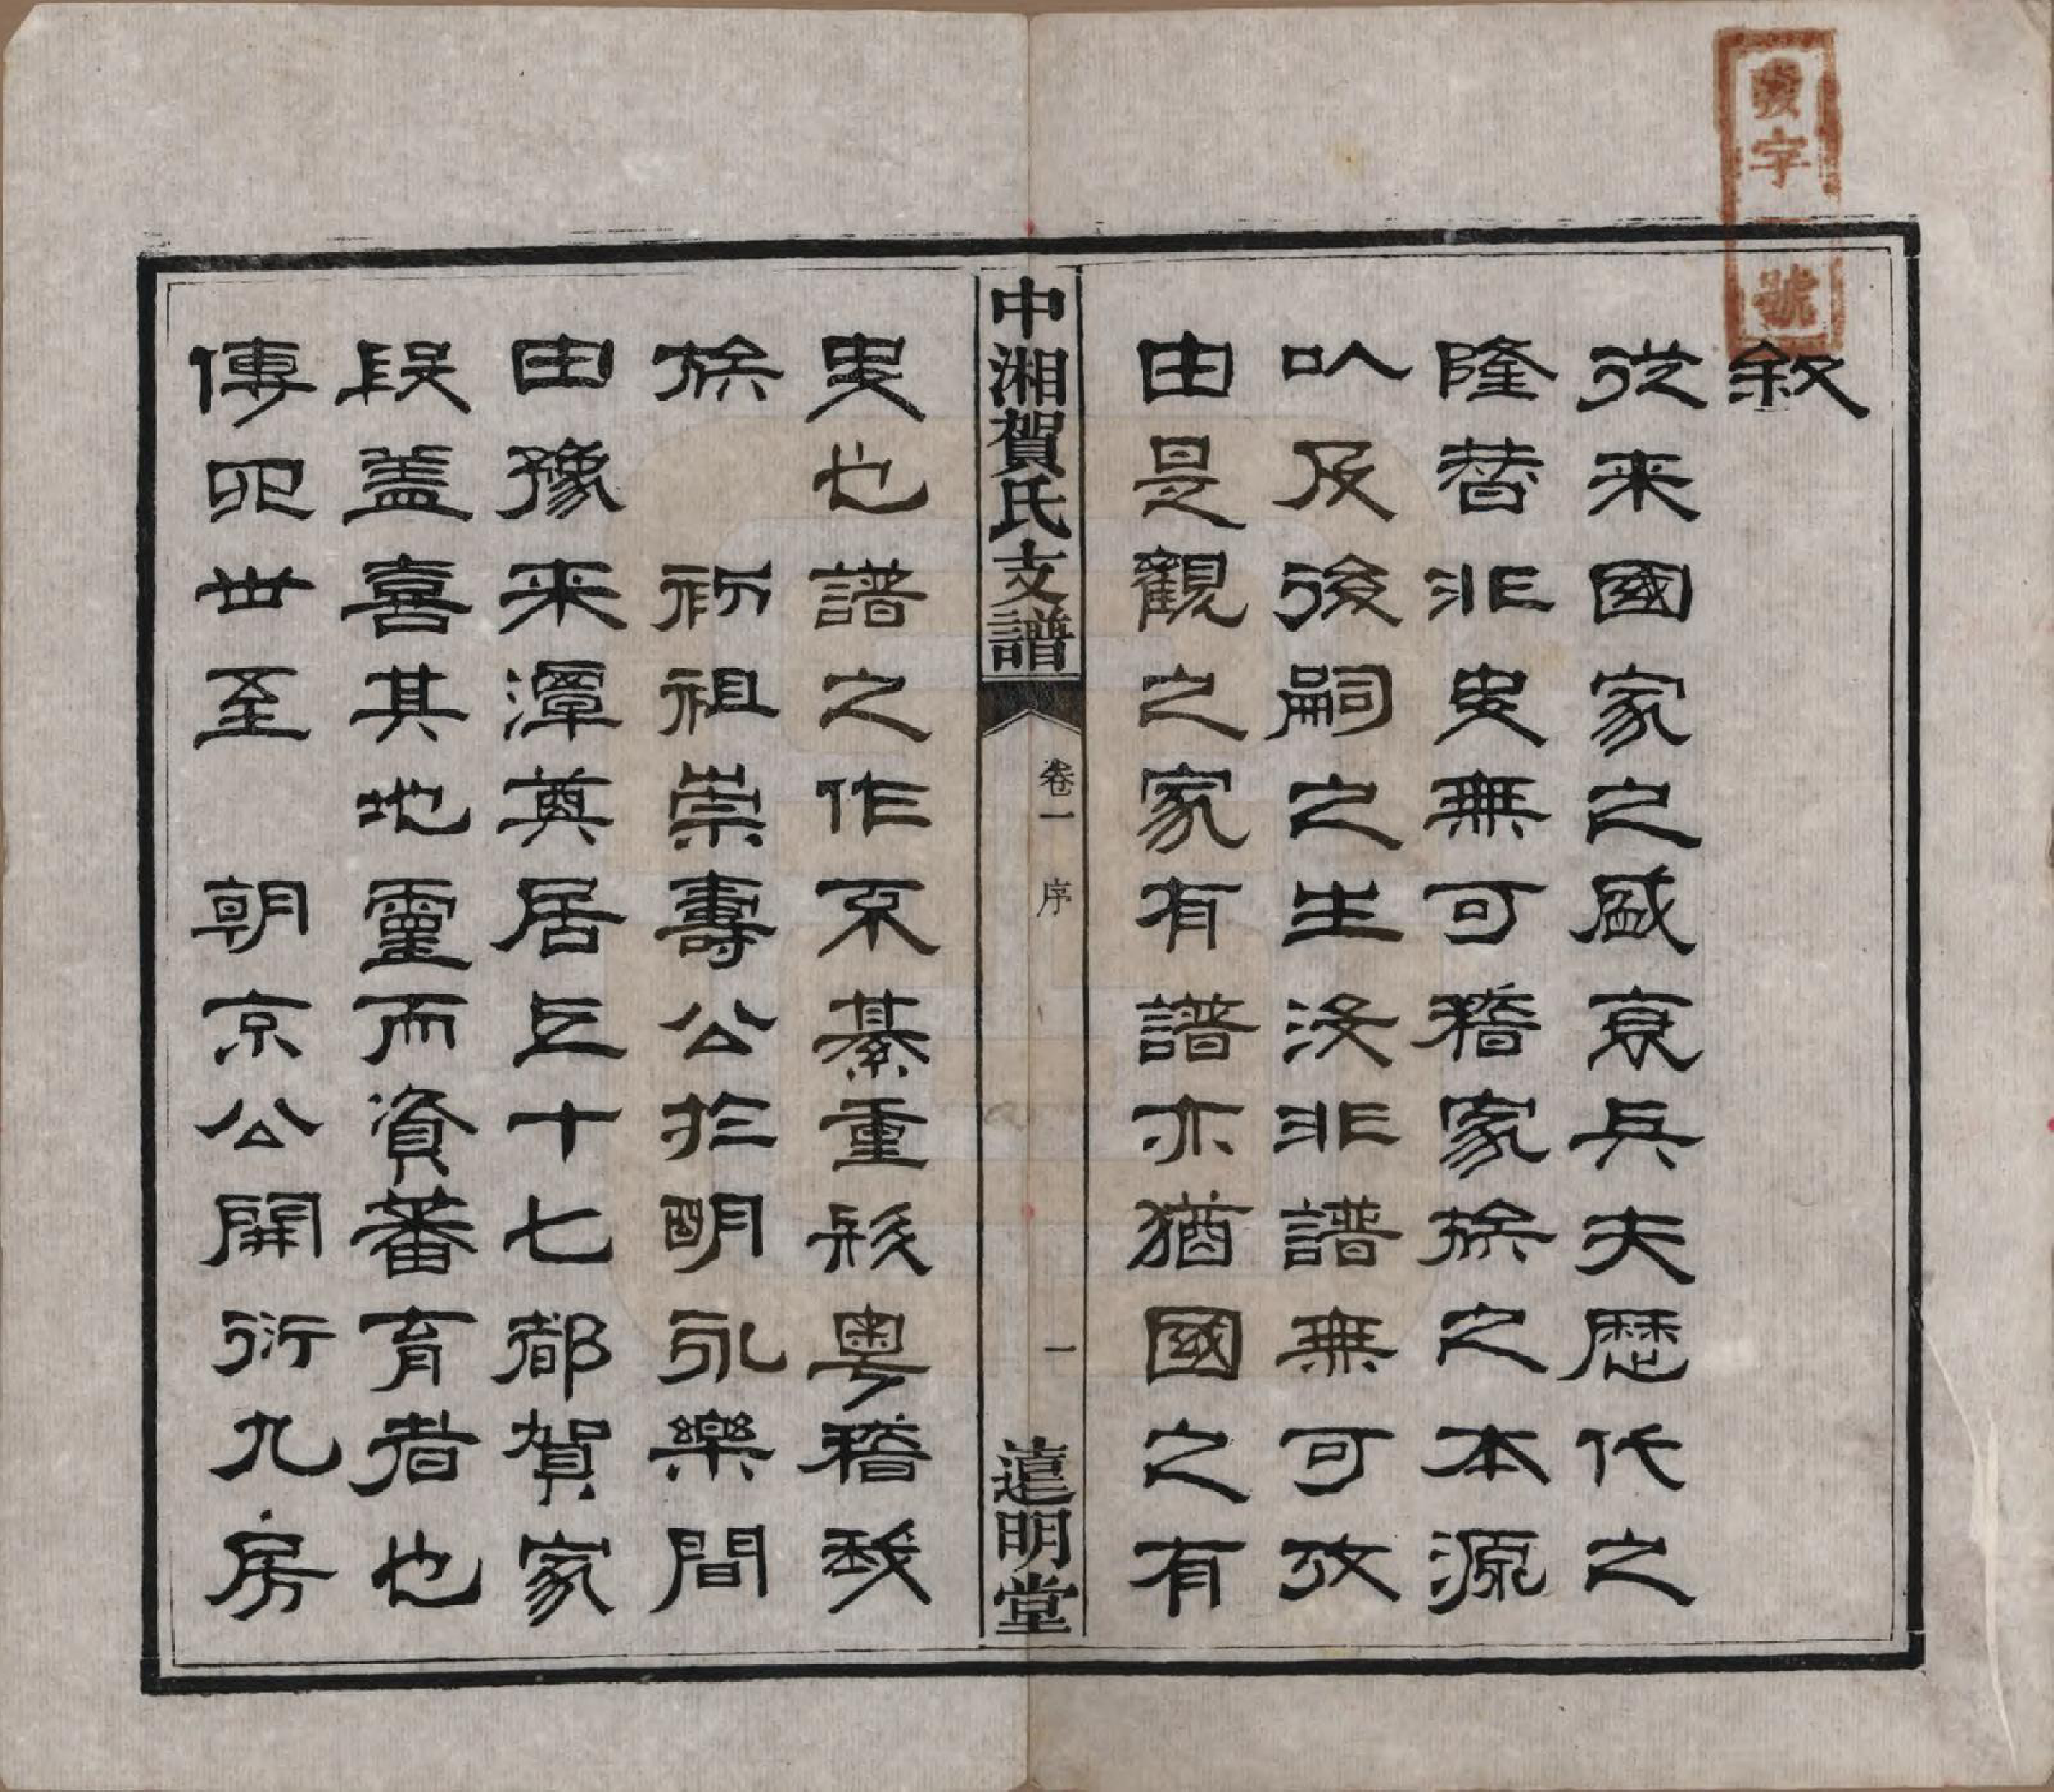 敘
從來國家之盛衰兵夫歷代之
隆替非史無可稽家族之本源
以及後嗣之生沒非譜無可攷
由是觀之家有譜亦猶國之有
中湘賀氏支譜
卷一 序
一
遠明堂
史也譜之作不綦重哉粵稽我
族 初祖崇壽公於明永樂間
由豫來潭奠居上十七都賀家
段蓋喜其地靈而資蕃育者也
傳四世至 朝京公開衍九房
字 號